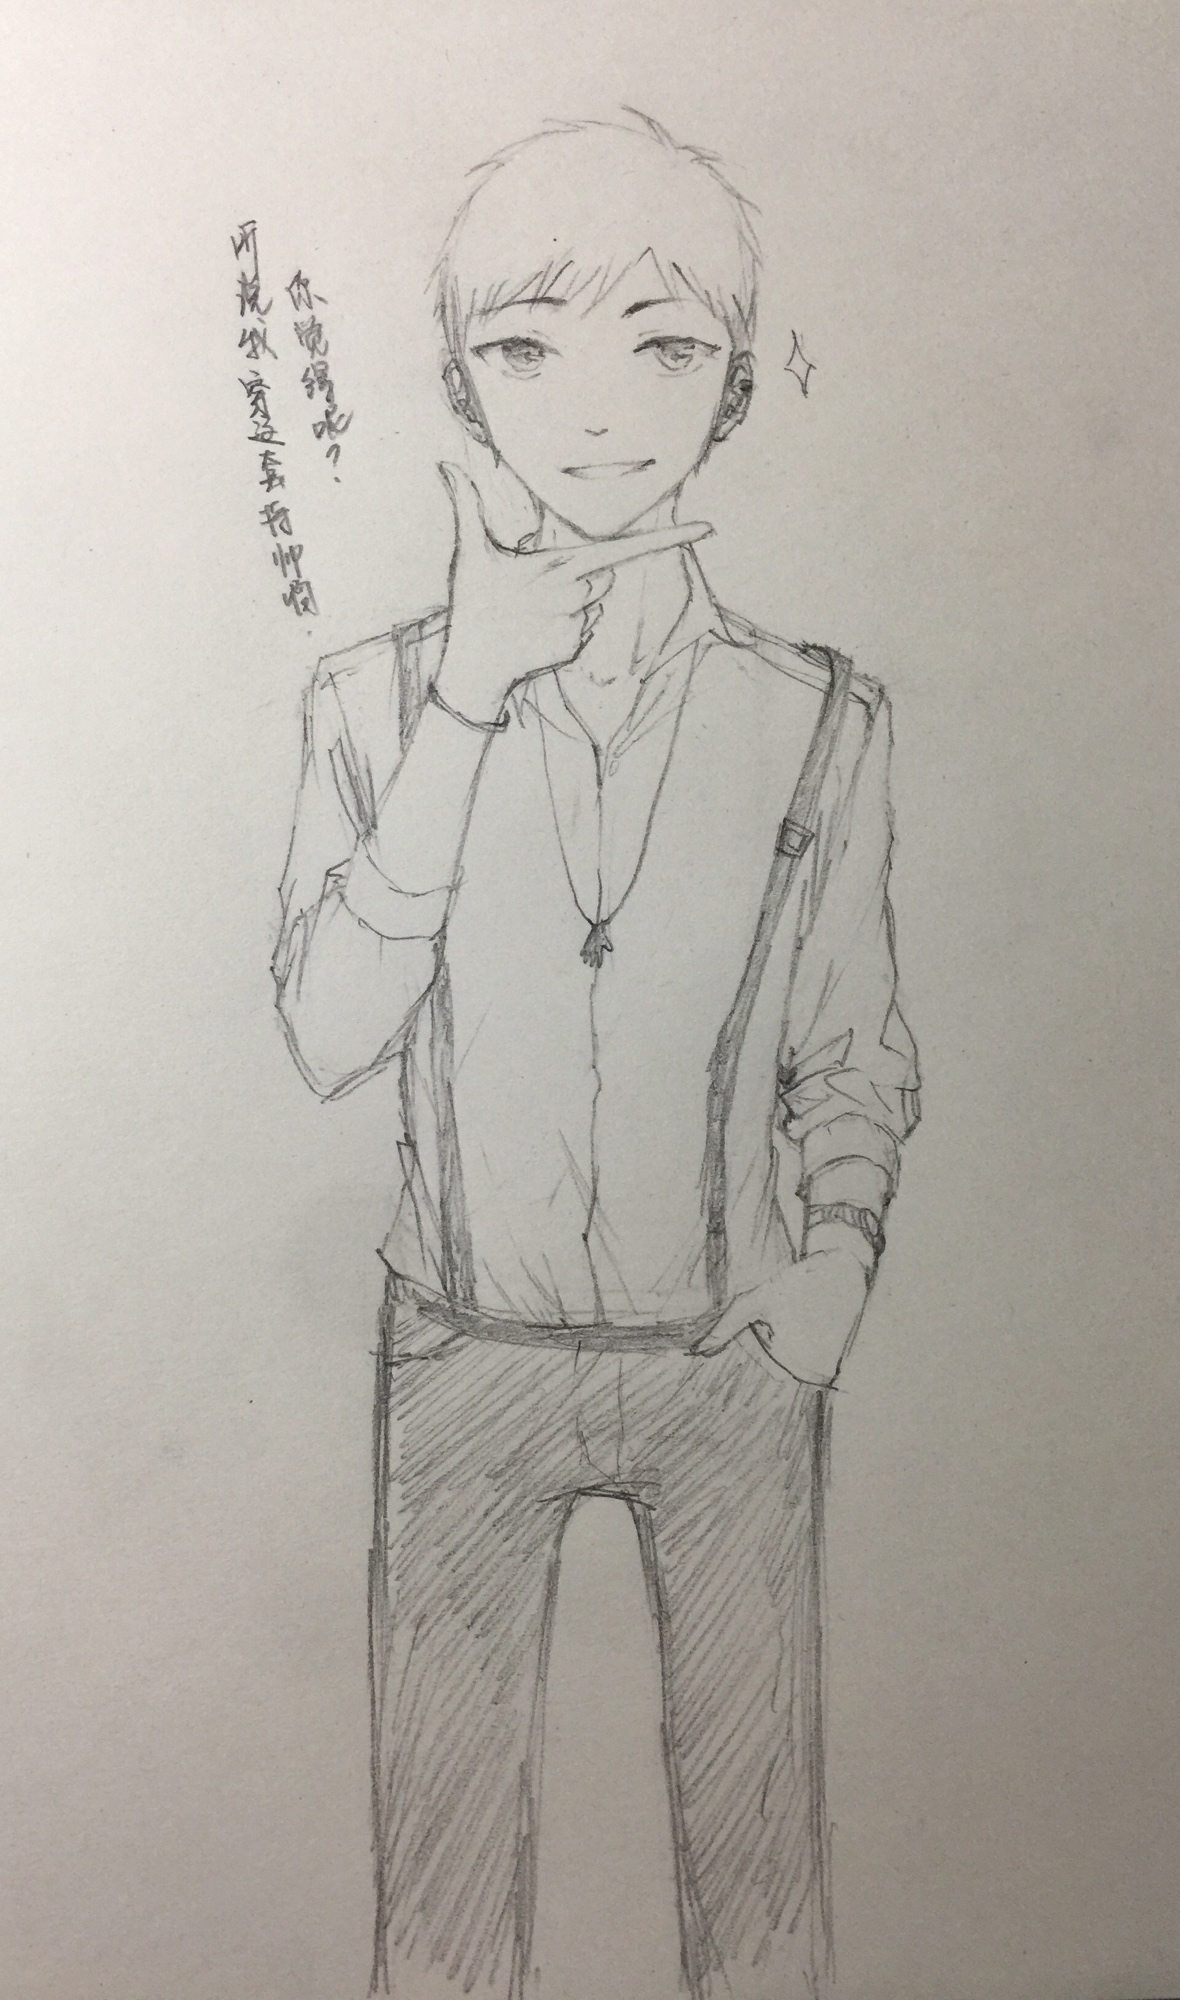 听说我穿这套挺帅的.
你觉得呢?